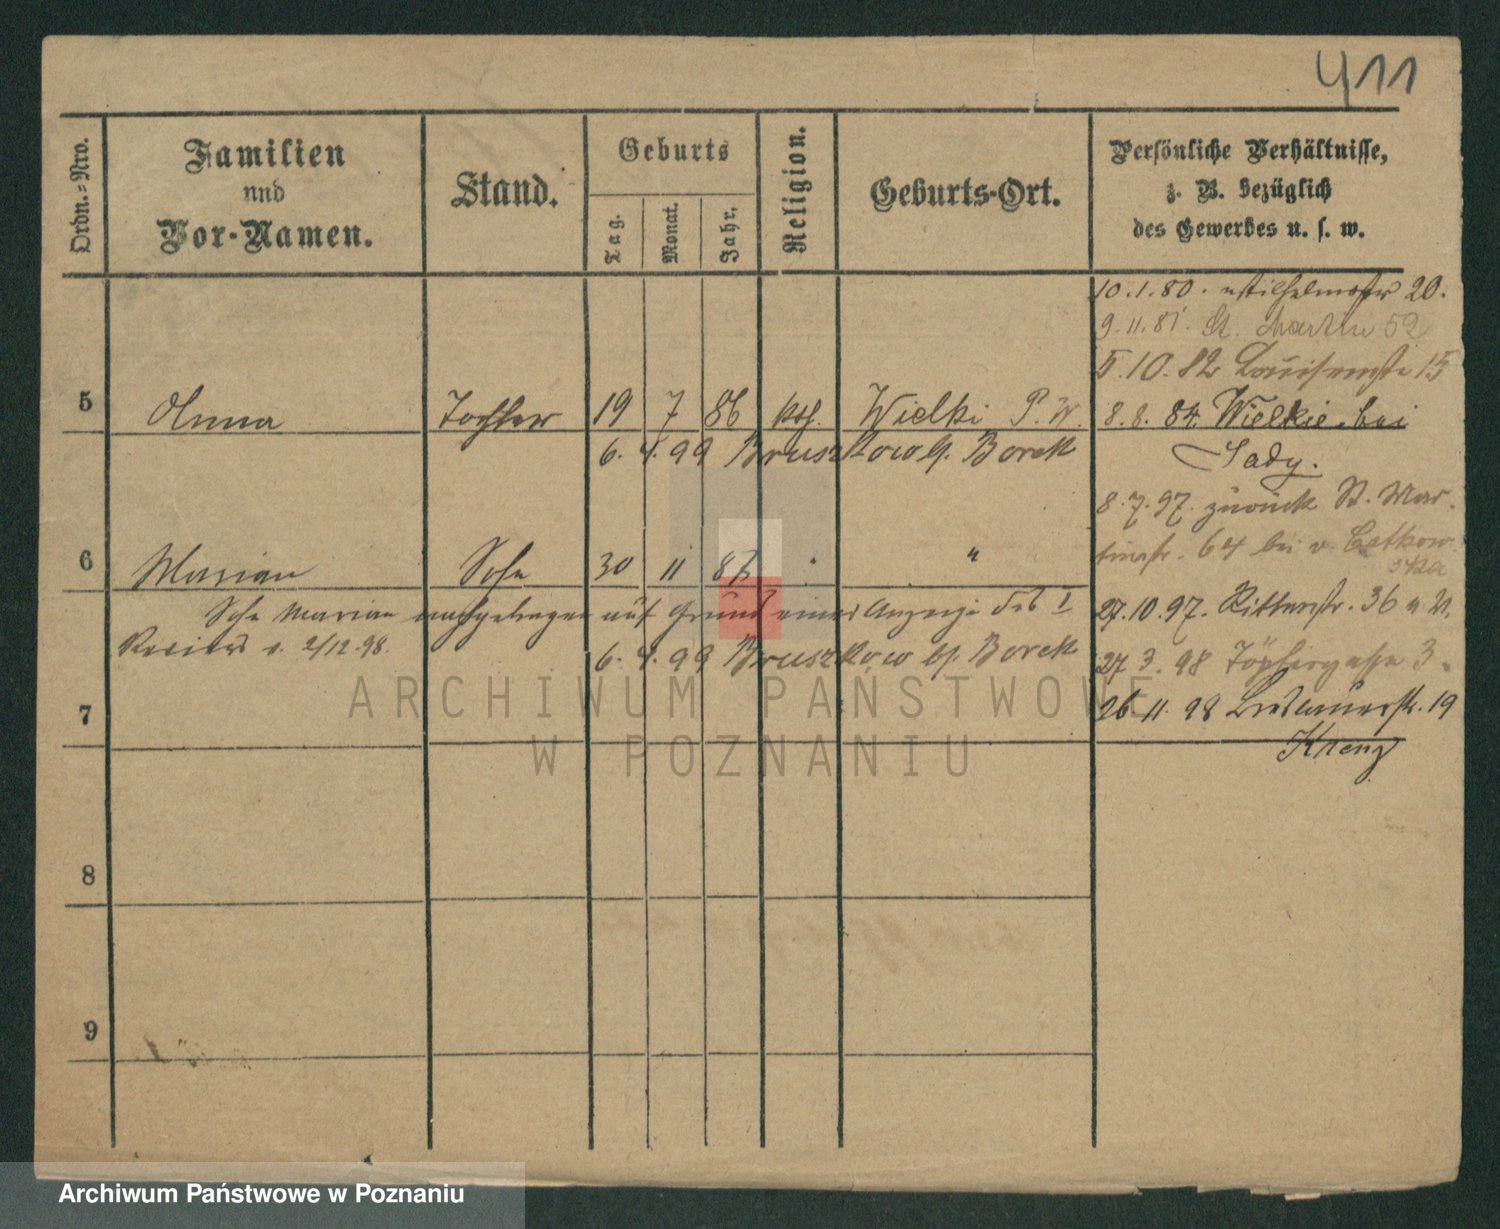 411
Ordn.=Nro.
Familien
und
Vor-Namen.
Stand.
Geburts
Tag.
Monat.
Jahr.
Religion.
Geburts-Ort.
Persönliche Verhältnisse,
z. B. bezüglich
des Gewerbes u. s. w.
10.1.80. Wilhelmstr 20.
9.11.81. St. Martin 52
5.10.82 Louisenstr 15
5 Anna Tochter 19 7 86 kath. Wielki P. W.
8.8.84. Wielkie bei
Sady.
6. 4. 99 Bruszkow b/. Borek
8.7.97. zurück St. Mar
tinstr. 64 bei v.
6 Marian Sohn 30 11 87 " "
27.10.97. Ritterstr. 36
Sohn Marian nachgetragen auf Grund einer Anzeige des I
Reviers v. 2/12.98.
6. 4. 99 Bruszkow b/. Borek
27 3. 98 Töpfergasse 3
7
26. 11. 98 19
Krenz
8
9
ARCHIWUM PAŃSTWOWE
W POZNANIU
Archiwum Państwowe w Poznaniu